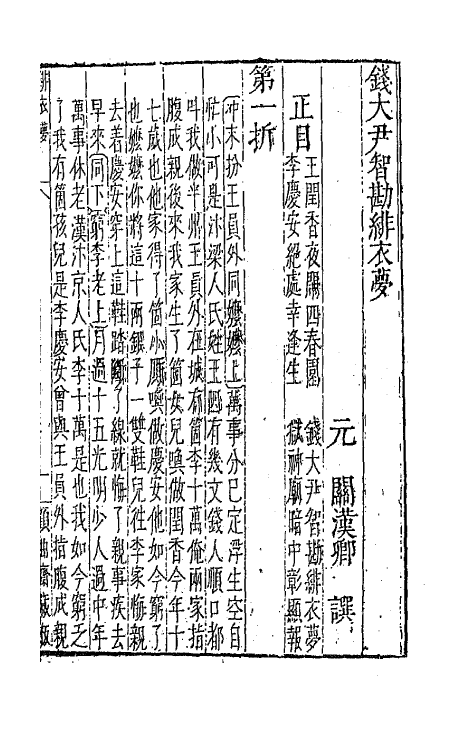 錢大尹智勘緋衣夢
元 關漢卿 譔
正目 王閏香夜鬧四春園 錢大尹智勘緋衣夢
李慶安絕處幸逢生 獄神廟暗中彰顯報
第一折
冲末扮王員外同嬤嬤上萬事分巳定浮生空自
忙小可是汴梁人氏姓王廼有幾文錢人順口都
呌我做半州王員外在城有箇李十萬俺兩家指
腹成親後來我家生了箇女兒喚做閏香今年十
七歲也他家得了箇小厮喚做慶安他如今窮了
也嬤嬤你將這十兩銀子一雙鞋兒徃李家悔親
去着慶安穿上這鞋踏斷了線就悔了親事疾去
早來同下窮李老上月過十五光明少人過中年
萬事休老漢汴京人氏李十萬是也我如今窮乏
了我有箇孩兒是李慶安曾與王員外指腹成親
緋衣夢 一 顧曲齋藏板